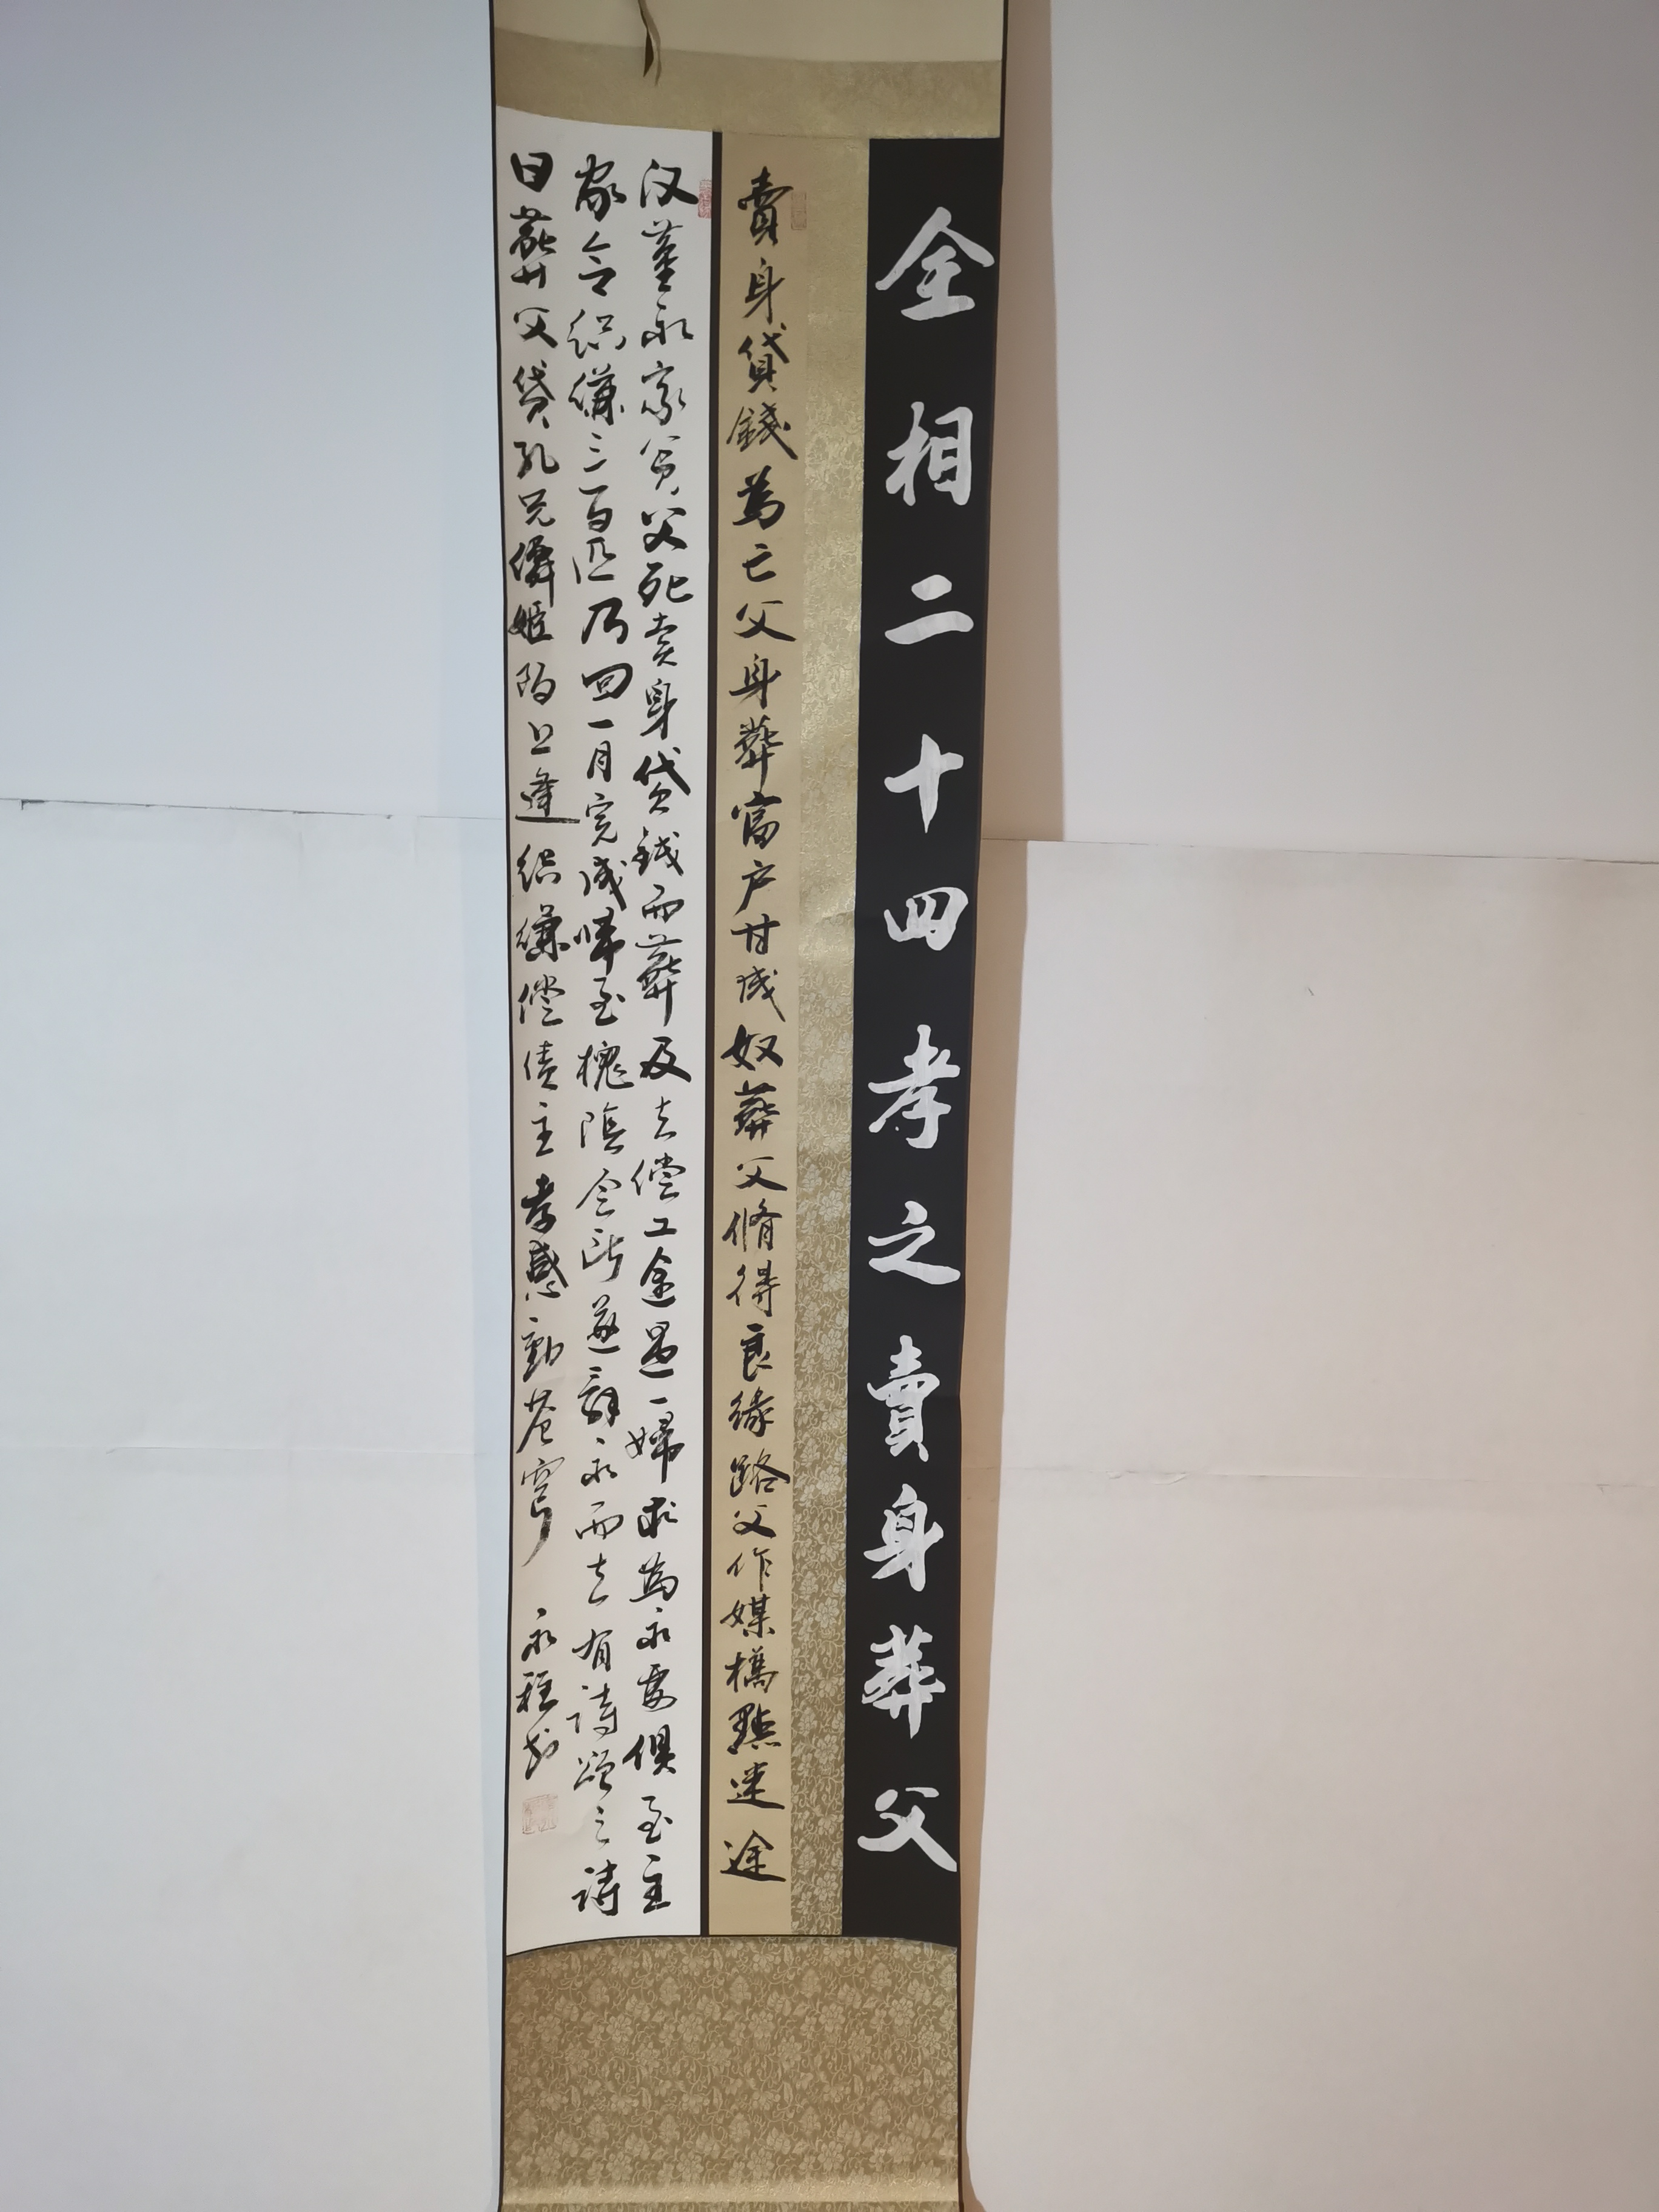 全相二十四孝之賣身葬父
賣身貸錢為亡父身葬富户甘成奴葬父脩得良缘路父作媒槗點迷途
汉董永家贫父死卖身贷钱而葬及去偿工途遇一婦求為永妻俱至主
家令织缣三百匹乃回一月完成归至槐陰会所遂辞永而去有诗颂之诗
曰葬父贷孔兄僊姬陌上逢织缣偿债主孝感動苍穹
永程书